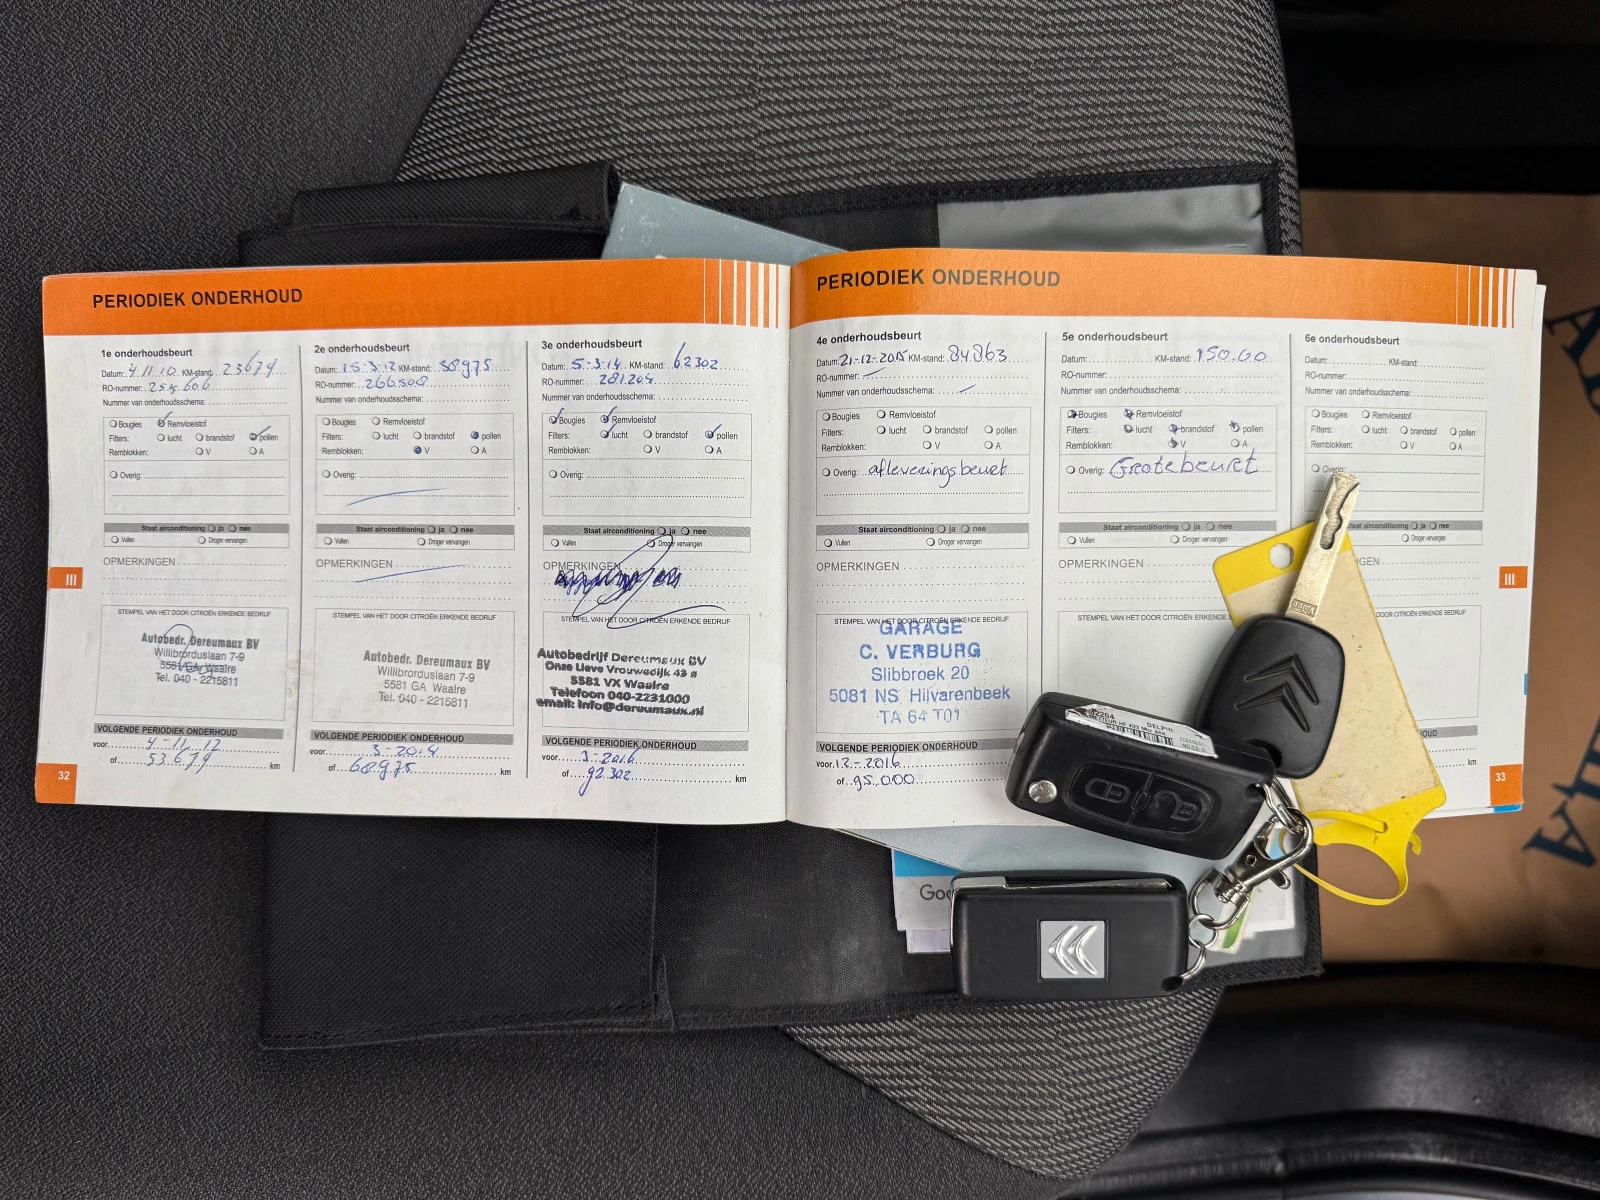 PERIODIEK ONDERHOUD
1e onderhoudsbeurt
Datum: 4.11.10 KM-stand: 23679
RO-nummer:
Nummer van onderhoudsschema:
Bougies Remvloeistof
Filters: lucht brandstof pollen
Remblokken: V A
Overig:
Staat airconditioning ja nee
Vullen Droger vervangen
OPMERKINGEN
STEMPEL VAN HET DOOR CITROËN ERKENDE BEDRIJF
Autobedr. Dereumaux BV
Willibrorduslaan 7-9
5581 GA Waalre
Tel. 040 - 2215811
VOLGENDE PERIODIEK ONDERHOUD
voor 4-11-12
of 53.679 km
2e onderhoudsbeurt
Datum: 15-3-12 KM-stand: 38975
RO-nummer: 266508
Nummer van onderhoudsschema:
Bougies Remvloeistof
Filters: lucht brandstof pollen
Remblokken: V A
Overig:
Staat airconditioning ja nee
Vullen Droger vervangen
OPMERKINGEN
STEMPEL VAN HET DOOR CITROËN ERKENDE BEDRIJF
Autobedr. Dereumaux BV
Willibrorduslaan 7-9
5581 GA Waalre
Tel. 040 - 2215811
VOLGENDE PERIODIEK ONDERHOUD
voor 3-2014
of 68.975 km
3e onderhoudsbeurt
Datum: 5-3-14 KM-stand: 62302
RO-nummer: 281204
Nummer van onderhoudsschema:
Bougies Remvloeistof
Filters: lucht brandstof pollen
Remblokken: V A
Overig:
Staat airconditioning ja nee
Vullen Droger vervangen
OPMERKINGEN
STEMPEL VAN HET DOOR CITROËN ERKENDE BEDRIJF
Autobedrijf Dereumaux BV
Onze Lieve Vrouwedijk 43 a
5581 VX Waalre
Telefoon 040-2231000
email: info@dereumaux.nl
VOLGENDE PERIODIEK ONDERHOUD
voor 3-2016
of 92.302 km
III
32
PERIODIEK ONDERHOUD
4e onderhoudsbeurt
Datum: 21-12-2015 KM-stand: 84.863
RO-nummer:
Nummer van onderhoudsschema:
Bougies Remvloeistof
Filters: lucht brandstof pollen
Remblokken: V A
Overig: afleveringsbeurt
Staat airconditioning ja nee
Vullen Droger vervangen
OPMERKINGEN
STEMPEL VAN HET DOOR CITROËN ERKENDE BEDRIJF
GARAGE
C. VERBURG
Slibbroek 20
5081 NS Hilvarenbeek
TA 64 T01
VOLGENDE PERIODIEK ONDERHOUD
voor 12-2016
of 95.000
5e onderhoudsbeurt
Datum: KM-stand: 150.00
RO-nummer:
Nummer van onderhoudsschema:
Bougies Remvloeistof
Filters: lucht brandstof pollen
Remblokken: V A
Overig: Grote beurt
Staat airconditioning ja nee
Vullen Droger vervangen
OPMERKINGEN
STEMPEL VAN HET DOOR CITROËN ERKENDE BEDRIJF
6e onderhoudsbeurt
Datum: KM-stand:
RO-nummer:
Nummer van onderhoudsschema:
Bougies Remvloeistof
Filters: lucht brandstof pollen
Remblokken: V A
Overig:
airconditioning ja nee
Droger vervangen
ERKENDE BEDRIJF
km
III
33
Valeo
DELPHI
Goo